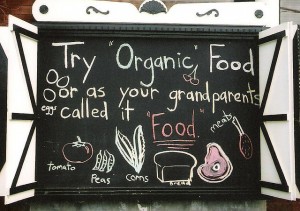 Try "Organic" Food
or as your grandparents
eggs
called it "Food."
meats
tomato
Peas
corns
bread